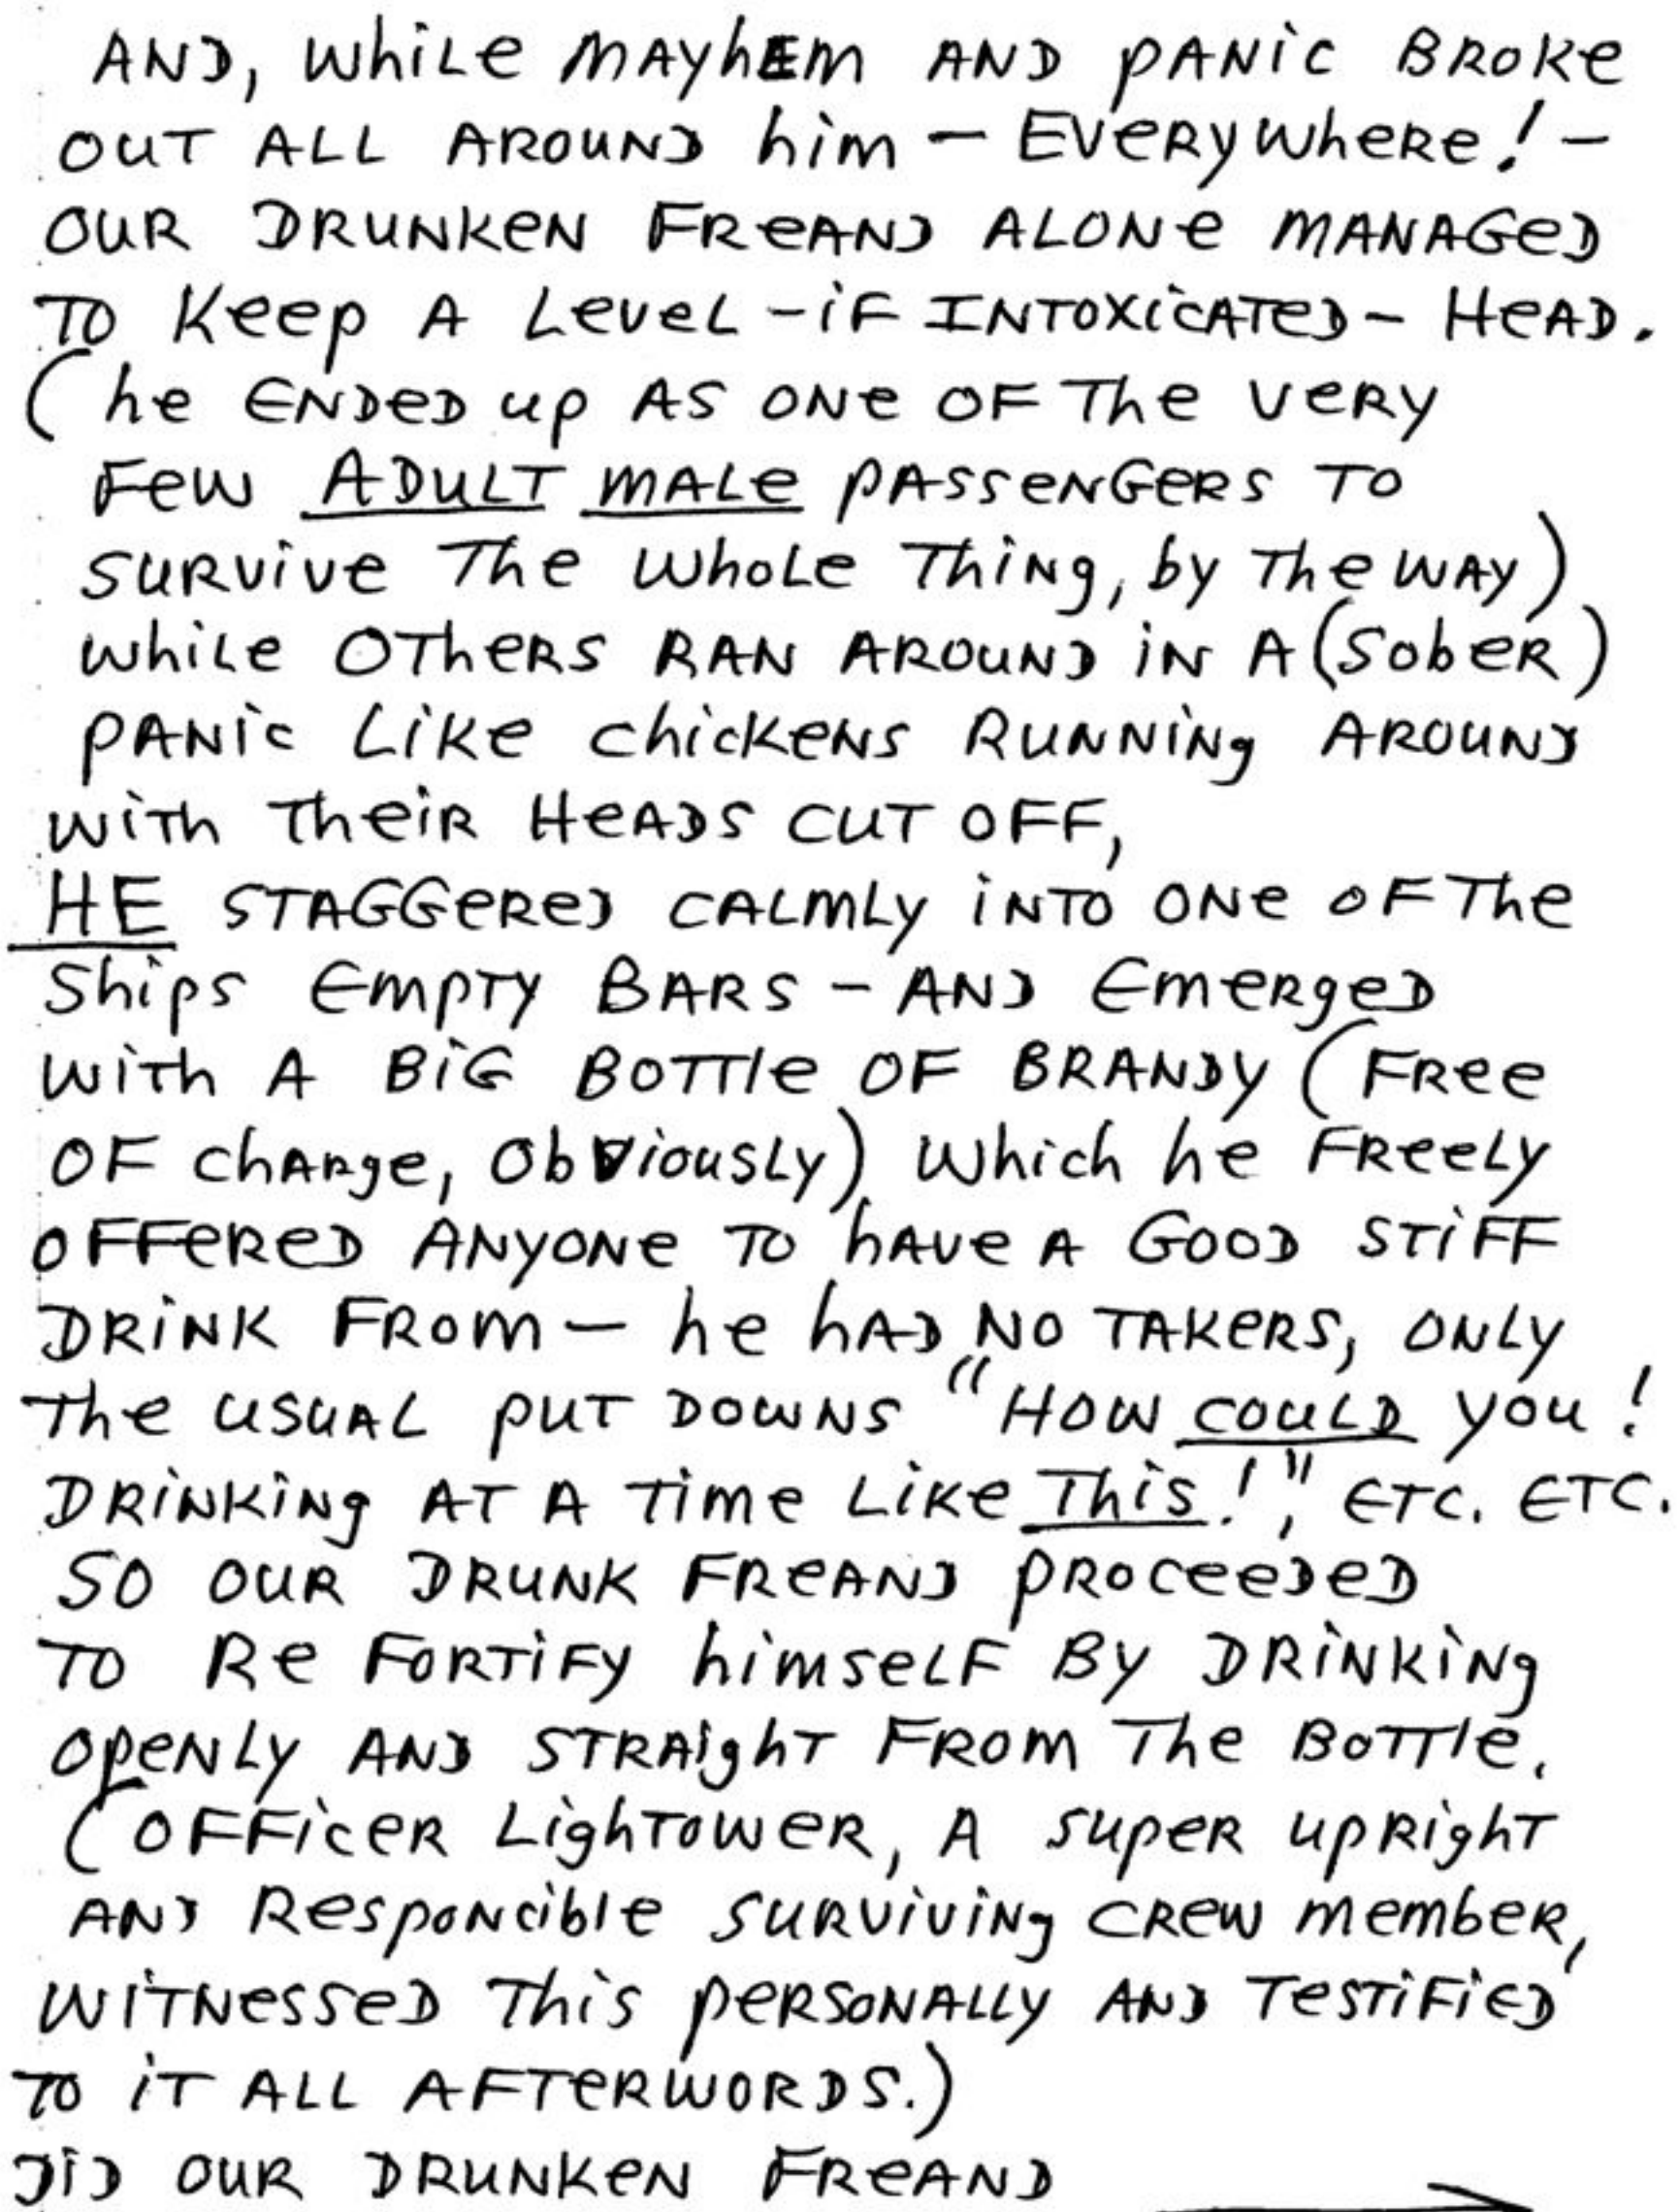 AND, while MAYhEM AND PANIC BROKE
OUT ALL AROUND him - EVERYWhERE! -
OUR DRUNKEN FREAND ALONE MANAGED
TO KEEP A LEVEL - IF INTOXICATED - HEAD.
(he ENDED UP AS ONE OF The VERY
FEW ADULT MALE PASSENGERS TO
SURVIVE The WHOLE ThING, by The WAY)
While OThERS RAN AROUND IN A (SobER)
PANIC LIKE chICKENS RUNNING AROUND
WITh TheIR HEADS CUT OFF,
HE STAGGERED CALMLY INTO ONE OF The
Ships EMPTY BARS - AND EMERGED
WITh A BIG BOTTLE OF BRANDY (FREE
OF chARge, ObVIOUSLY) Which he FREELY
OFFERED ANYONE TO hAVE A GOOD STIFF
DRINK FROM - he hAD NO TAKERS, ONLY
The USUAL PUT DOWNS "HOW COULD YOU!
DRINKING AT A TIME LIKE This!", ETC. ETC.
SO OUR DRUNK FREAND PROCEEDED
TO RE FORTIFY himSELF BY DRINKING
OPENLY AND STRAIghT FROM The BOTTLE.
(OFFICER LIghTOWER, A SUPER UPRIghT
AND RESPONCIBLE SURVIVING CREW MEMBER,
WITNESSED This PERSONALLY AND TESTIFIED
TO IT ALL AFTERWORDS.)
DID OUR DRUNKEN FREAND →